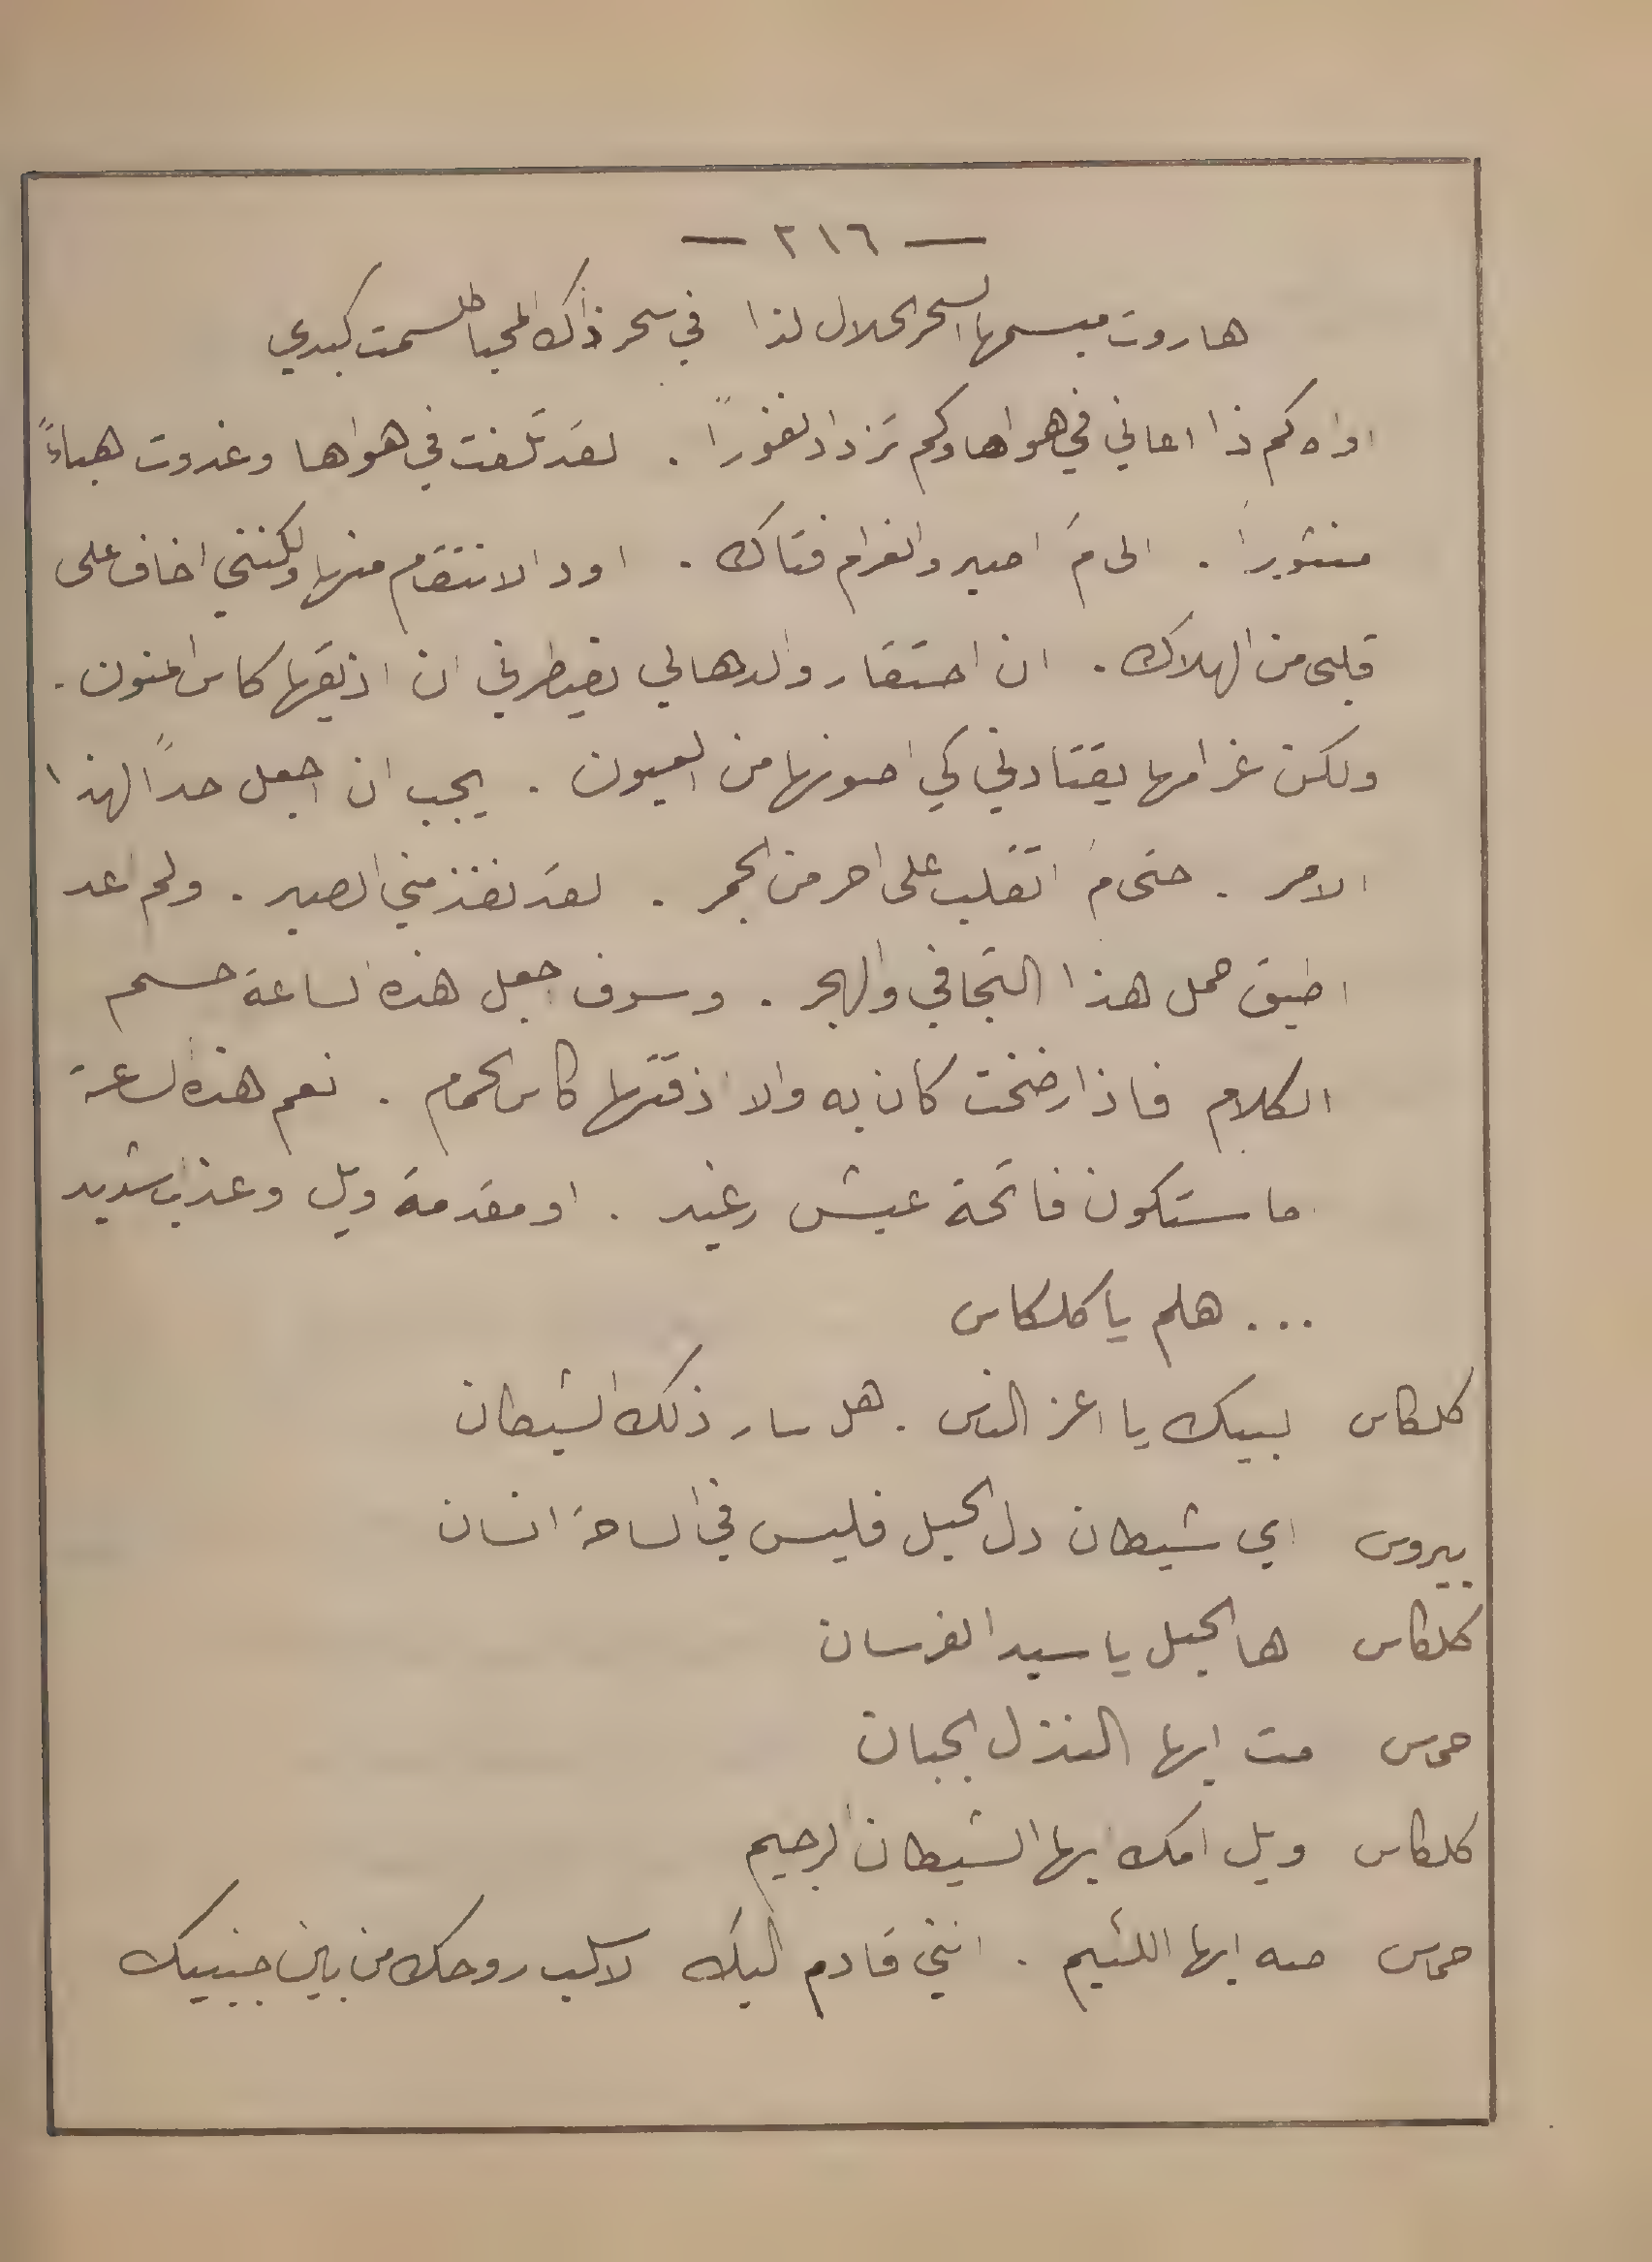 — ٢١٦ —
هاروت مبسمها السحر الحلال لذا في سحر ذاك المحيا طلسمت كبدي
اواه كم ذا اعاني في هواها وكم تزداد نفورًا . لقد تلفت في هواها وغدوت هباءً
منثورا . الى مَ اصبر والغرام فتاك . اود الانتقام منها ولكنني اخاف على
قلبي من الهلاك . ان احتقار والدها لي يضطرني ان اذيقها كاس المنون .
ولكن غرامها يقتادني كي اصونها من العيون . يجب ان اجعل حدًا لهذا
الامر . حتى مَ اتقلب على احر من الجمر . لقد نفذ مني الصبر . ولم اعد
اطيق حمل هذا التجافي والهجر . وسوف اجعل هذه الساعة حسم
الكلام فاذا رضخت كان به والا اذقتها كاس الحمام . نعم هذه الساعة
اما ستكون فاتحة عيش رغيد . او مقدمة ويل وعذاب شديد
... هلم يا كلكاس
كلكاس لبيك يا اعز الناس . هل سار ذلك الشيطان
بيروس اي شيطان دل الحبل فليس في الساحة انسان
كلكاس ها الحبل يا سيد الفرسان
حماس مت ايها النذل الجبان
كلكاس ويل امك ايها الشيطان الرجيم
حماس صه ايها اللئيم . انني قادم اليك لاسلب روحك من بين جنبيك